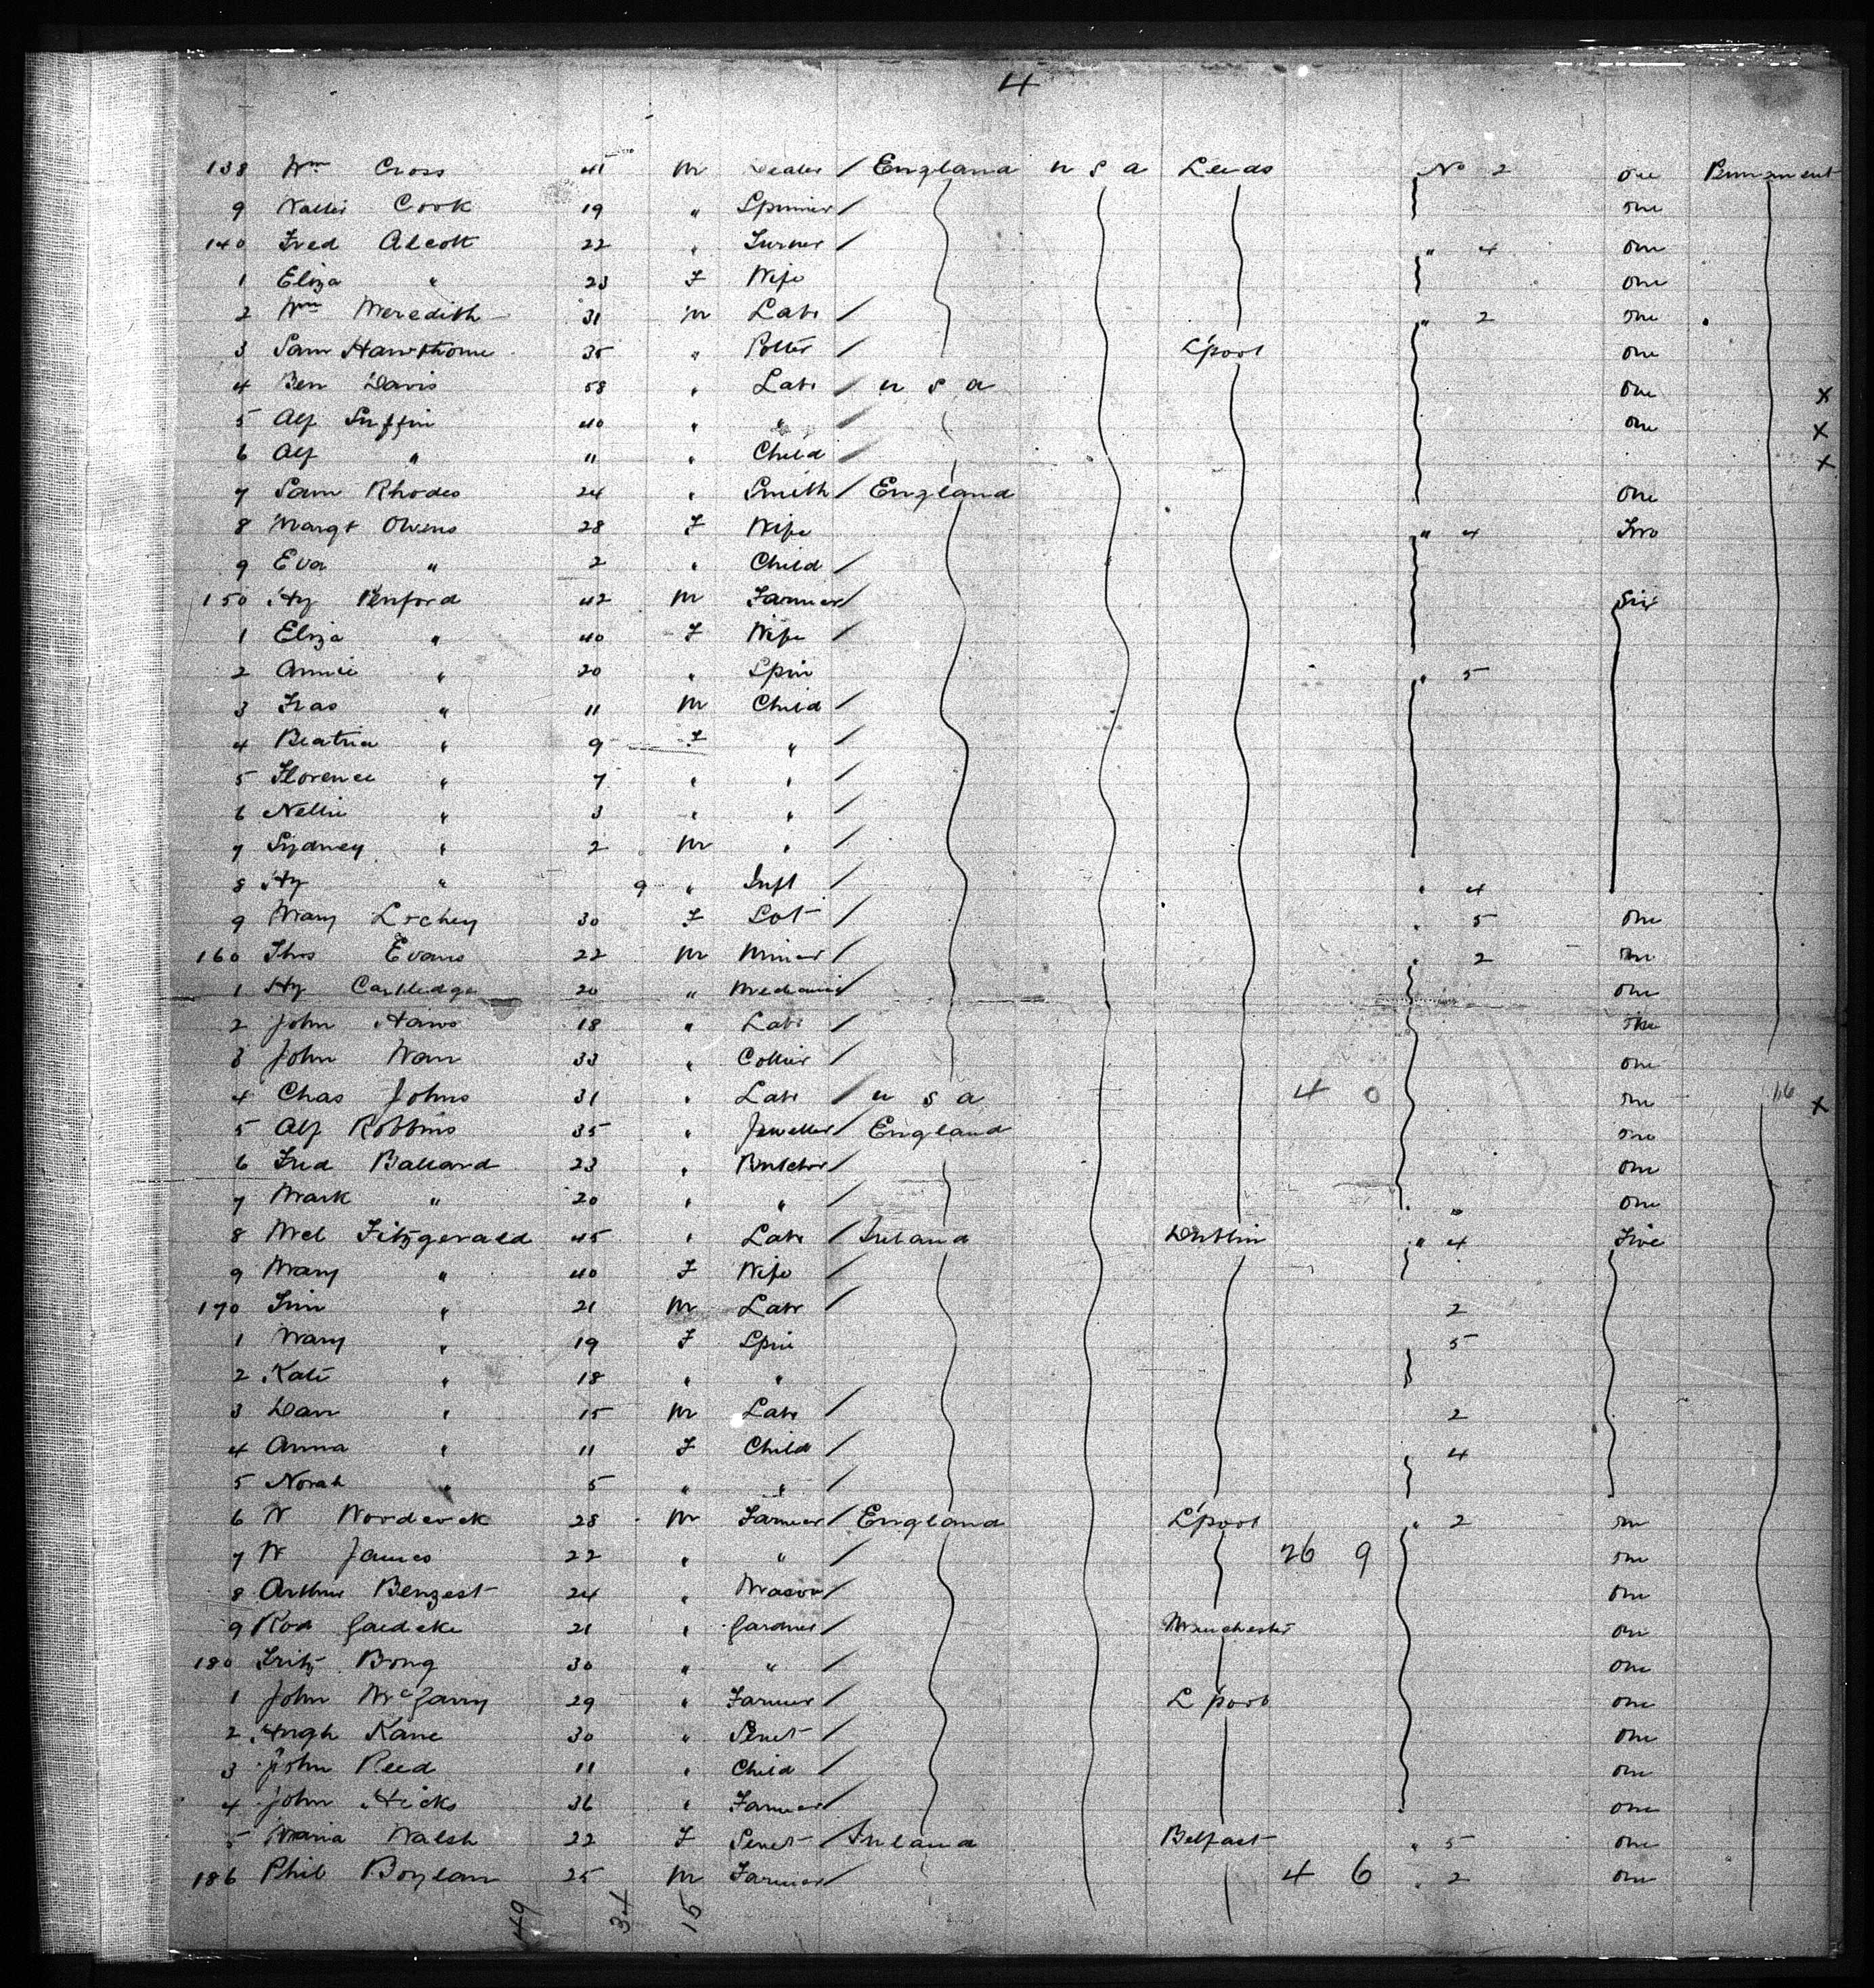 4
138 Wm Cross 41 M Dealer / England U S A Leeds No 2 One Permanent
9 Walter Cook 19 " Spinner / One
140 Fred Alcott 22 " Turner / " 4 One
1 Eliza " 23 F Wife One
2 Wm Meredith 31 M Labr / " 2 One
3 Sam Hawthorne 35 " Potter / L'pool One
4 Ben Davis 58 " Labr / U S A One X
5 Alf Suffin 40 " " / One X
6 Alf " 11 " Child / X
7 Sam Rhodes 24 " Smith / England One
8 Margt Owens 28 F Wife " 4 Two
9 Eva " 2 " Child /
150 Hy Penford 42 M Farmer / Six
1 Eliza " 40 F Wife /
2 Annie " 20 " Spin " 5
3 Fras " 11 M Child /
4 Beatrice " 9 F " /
5 Florence " 7 " " /
6 Nellie " 3 " " /
7 Sydney " 2 M " /
8 Hy " 9 " Inft / " 4
9 Mary Lochey 30 F / " 5 One
160 Thos Evans 22 M Miner / " 2 One
1 Hy Cartledge 20 " Mechanic / One
2 John Haws 18 " Labr / One
3 John Warr 33 " Collier / One
4 Chas Johns 31 " Labr / U S A 4 0 One 116 X
5 Alf Robbins 35 " Jeweller / England One
6 Fred Ballard 23 " Butcher / One
7 Mark " 20 " " / " One
8 Mcl Fitzgerald 45 " Labr / Ireland Dublin " 4 Five
9 Mary " 40 F Wife /
170 Jim " 21 M Labr / 2
1 Mary " 19 F Spin 5
2 Kate " 18 " "
3 Dan " 15 M Labr / 2
4 Anna " 11 F Child / 4
5 Norah " 5 " " /
6 W Woodcock 28 M Farmer / England L'pool " 2 One
7 W James 22 " " / 26 9 One
8 Arthur Benzest 24 " Mason / One
9 Rod Gaedeke 21 " Gardner / Manchester One
180 Fritz Bong 30 " " / One
1 John McGarry 29 " Farmer / L'pool One
2 Hugh Kane 30 " Servt / One
3 John Reed 11 " Child / One
4 John Hicks 36 " Farmer / One
5 Maria Walsh 22 F Servt / Ireland Belfast " 5 One
186 Phil Boylan 25 M Farmer / 4 6 " 2 One
49 34 15